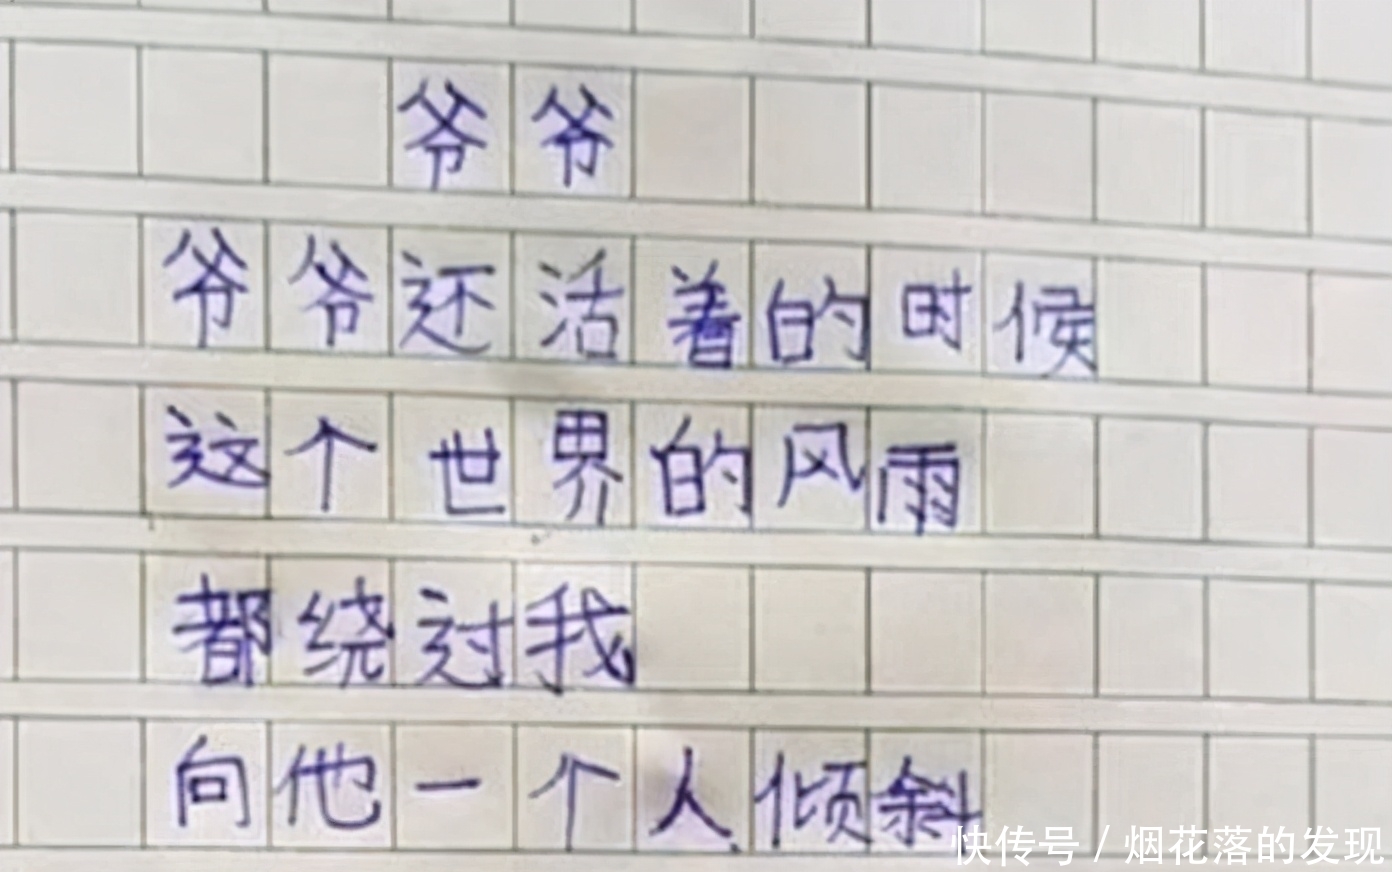 爷爷
爷爷还活着的时候
这个世界的风雨
都绕过我
向他一个人倾斜
快传号 / 烟花落的发现